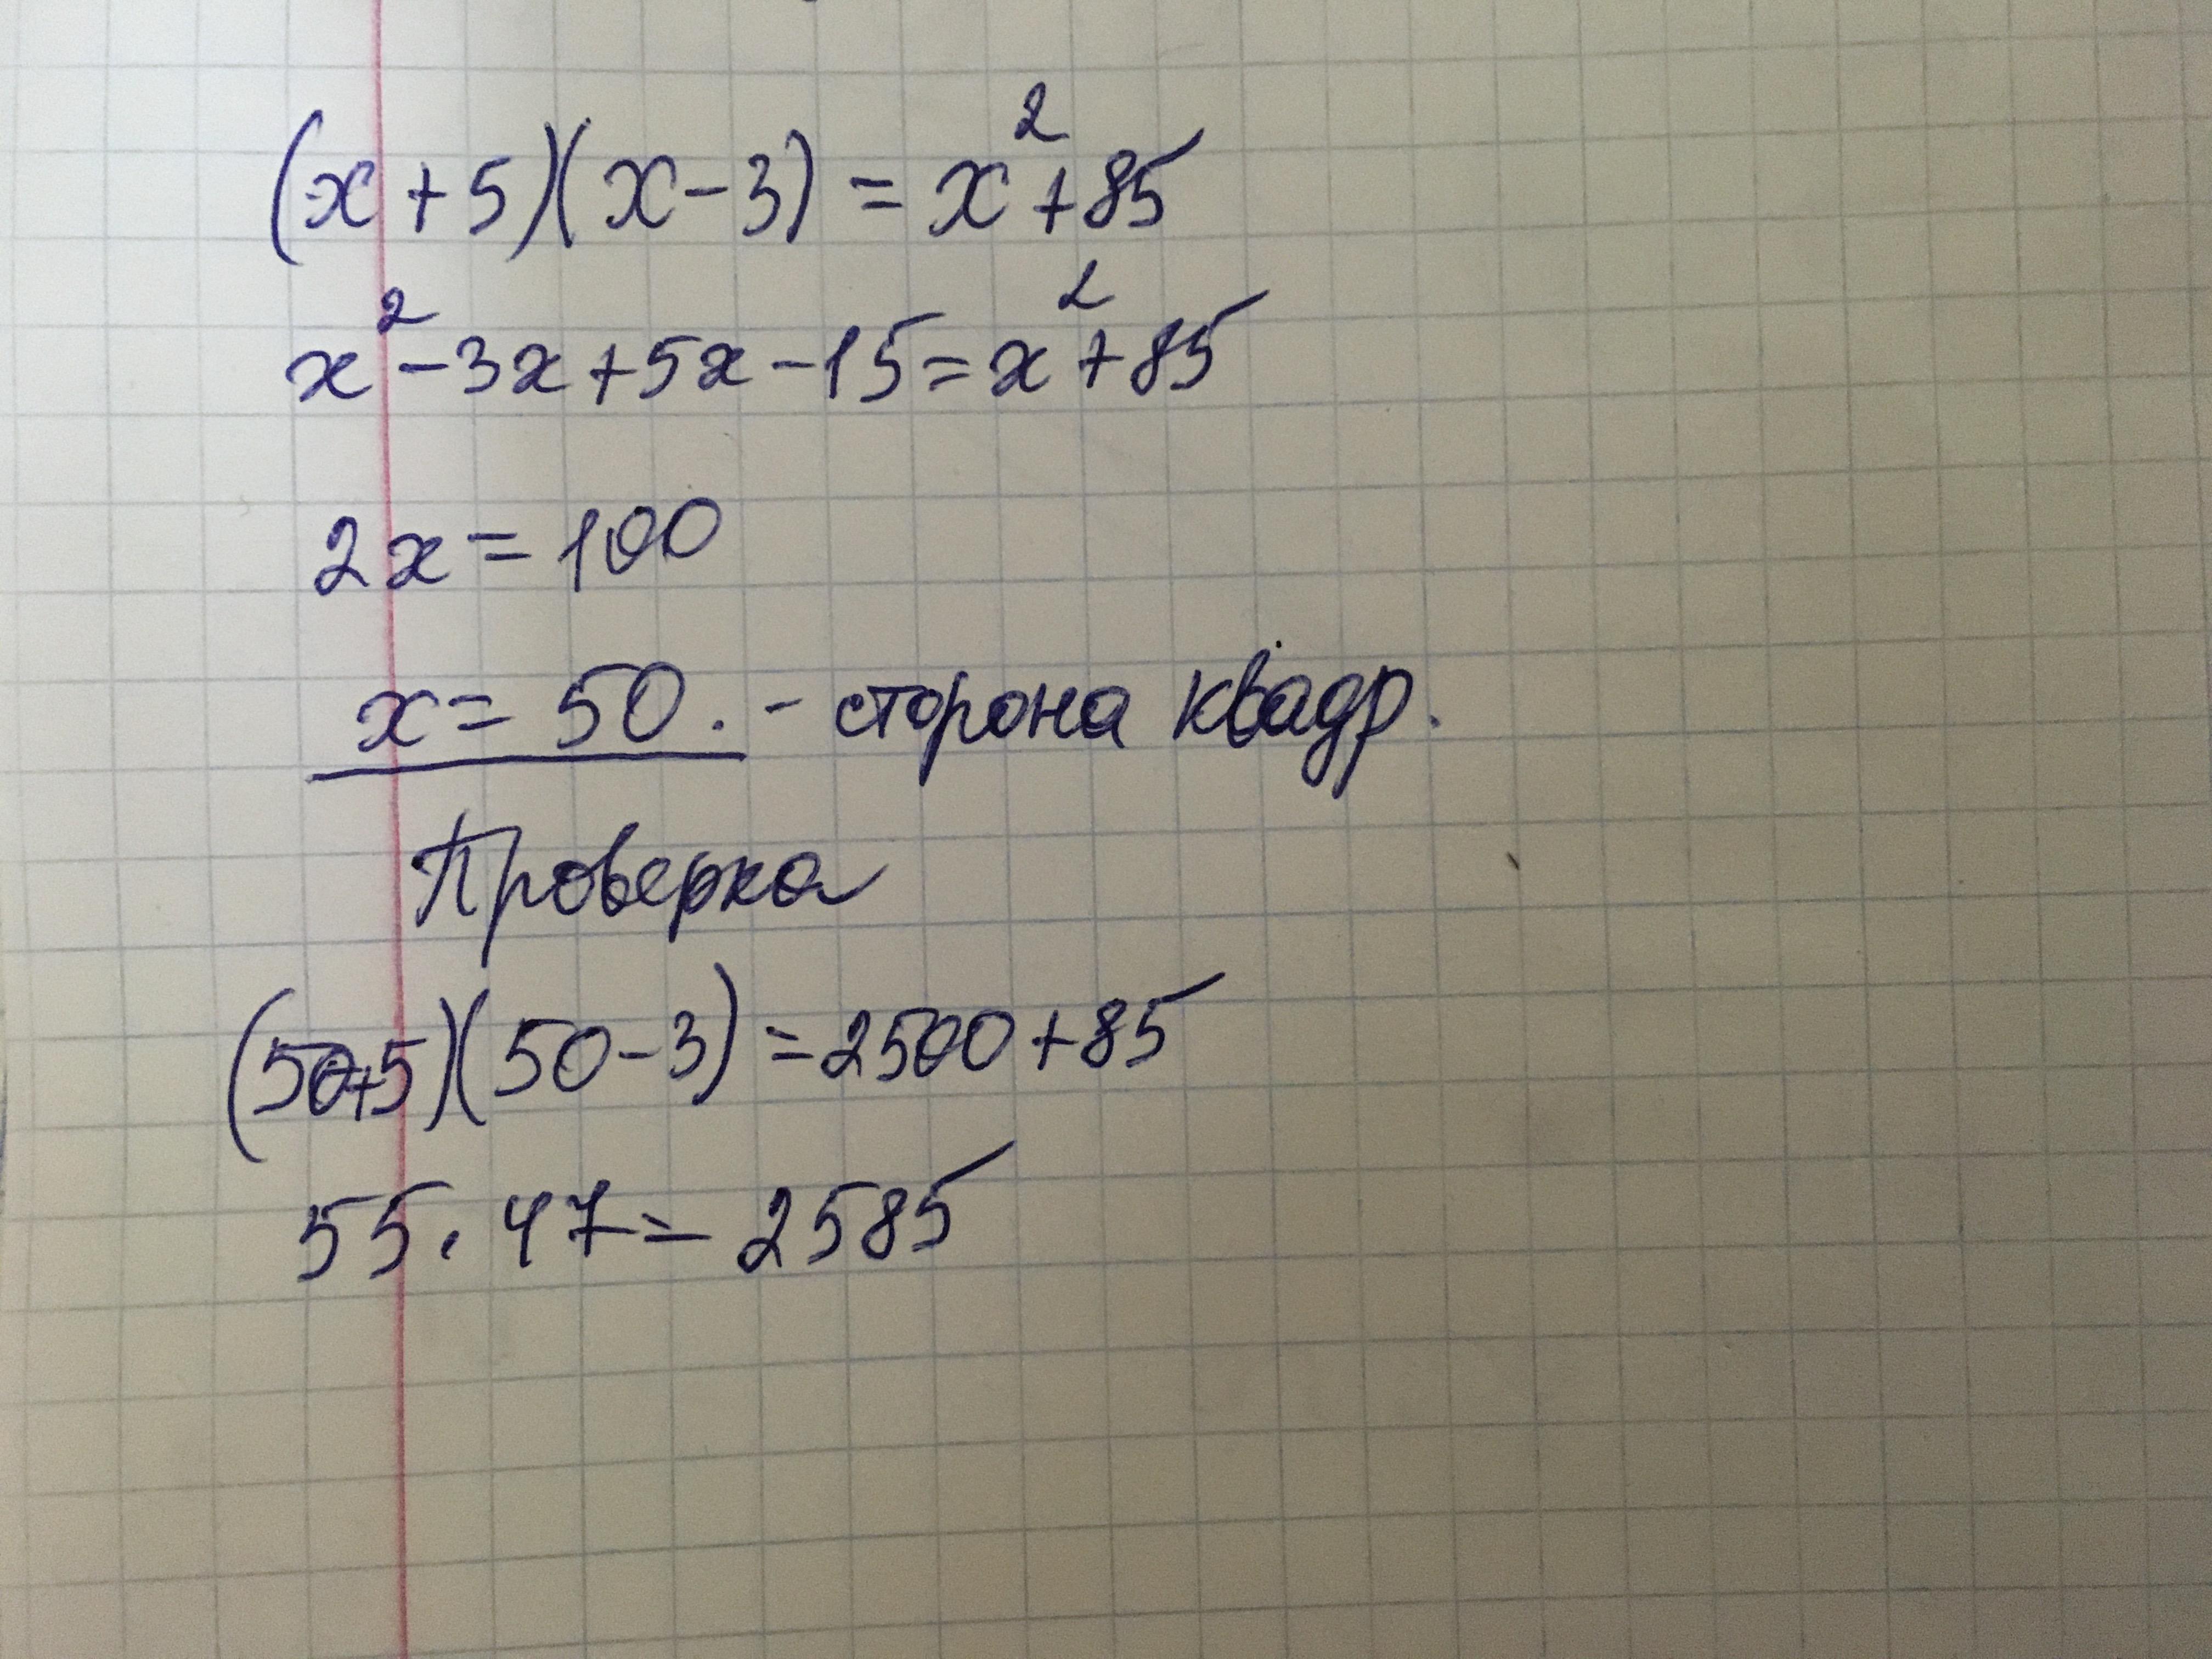 (x+5)(x-3) = x²+85
x²-3x+5x-15=x²+85
2x=100
x=50. - сторона квадр.
Проверка
(50+5)(50-3)=2500+85
55·47=2585